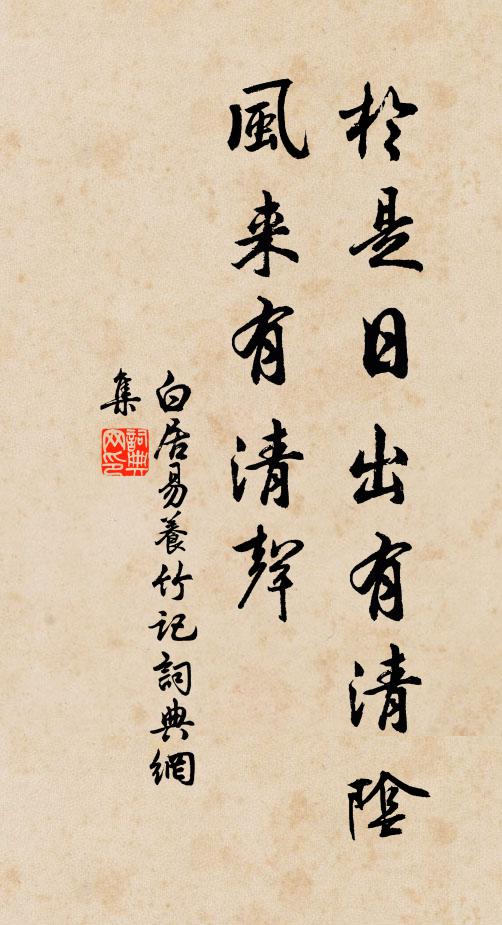 於是日出有清陰
風来有清聲
白居易養竹記詞典網
集
詞典
网印